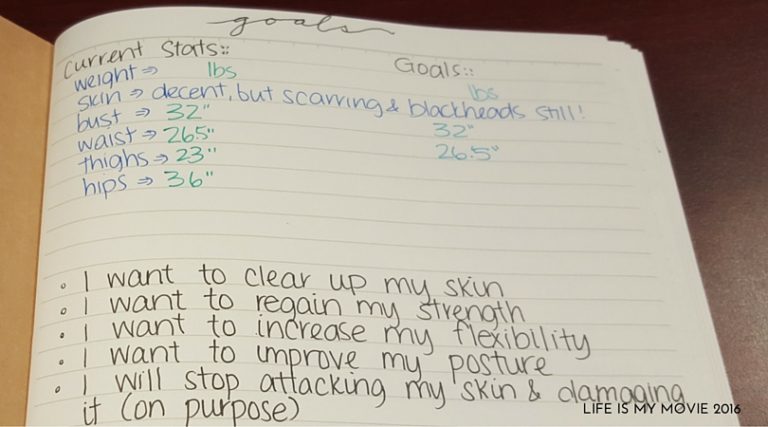 goals
Current Stats:: Goals::
weight ⇒ lbs lbs
skin ⇒ decent, but scarring & blackheads still!
bust ⇒ 32" 32"
waist ⇒ 26.5" 26.5"
thighs ⇒ 23"
hips ⇒ 36"
• I want to clear up my skin
• I want to regain my strength
• I want to increase my flexibility
• I want to improve my posture
• I will stop attacking my skin & damaging
it (on purpose)
LIFE IS MY MOVIE 2016